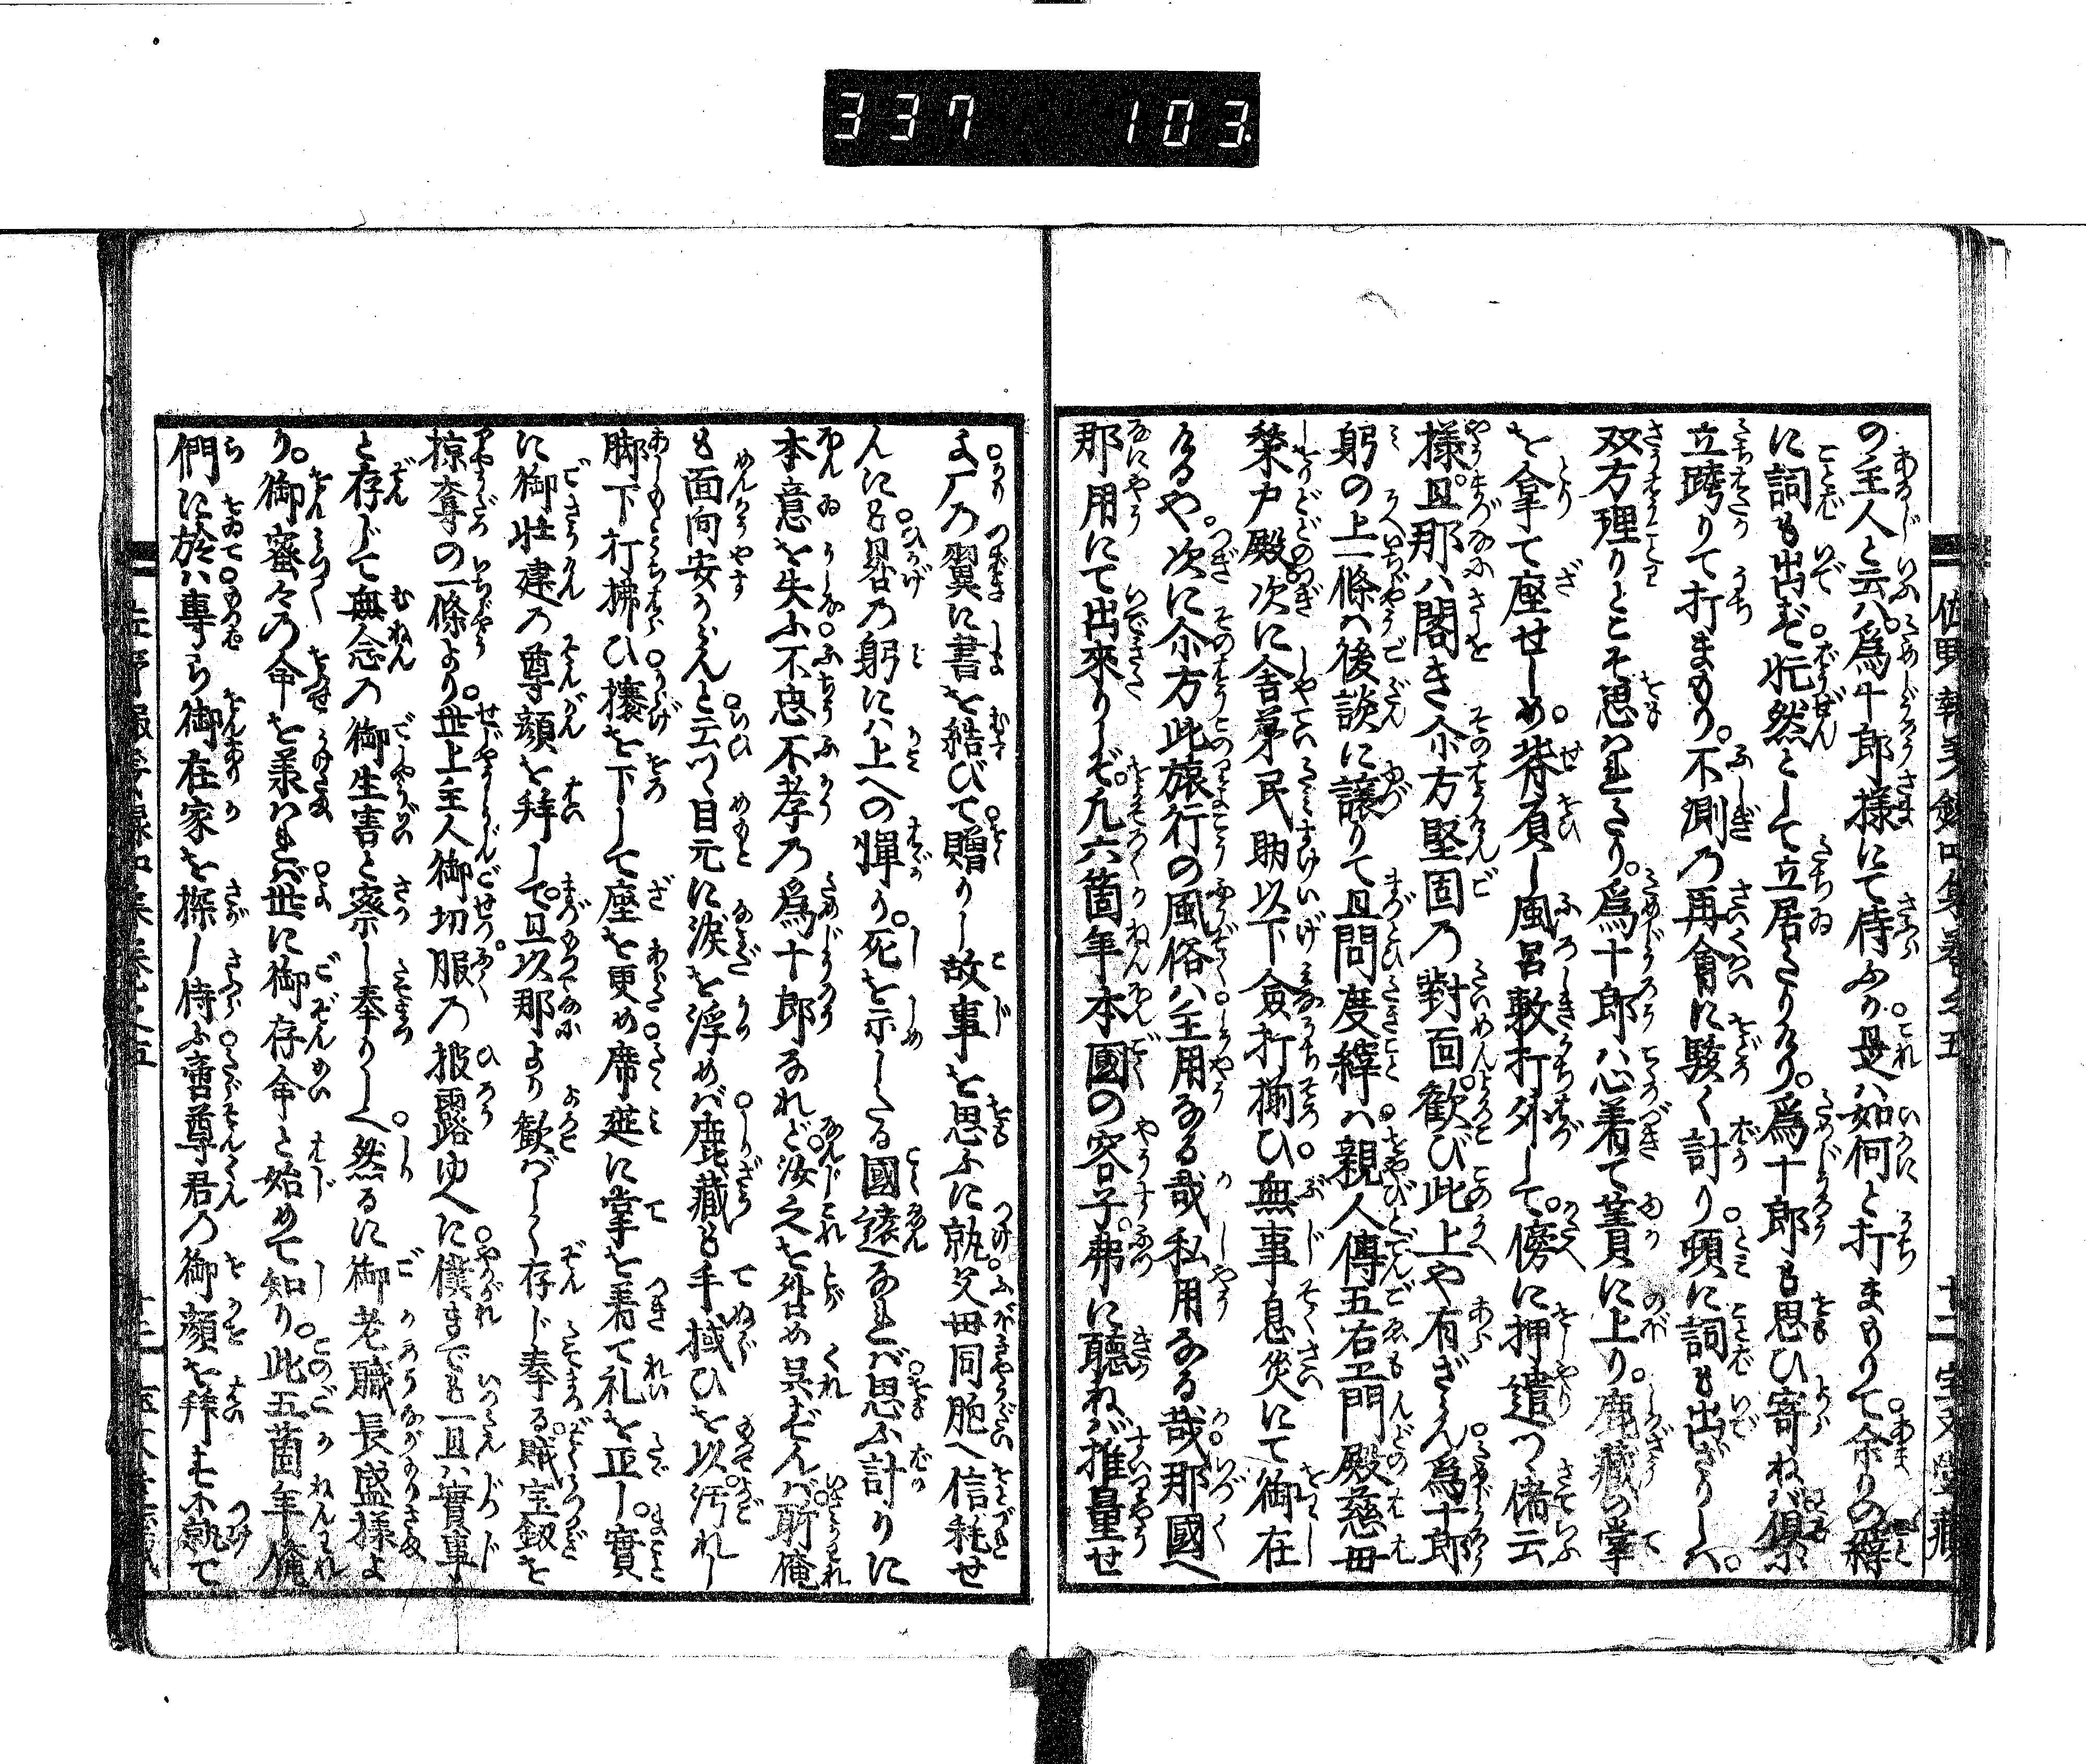 337 103.
の主人と云ハ。爲十郎様にて侍ふか是ハ如何と打まもりて余りの縡
に詞も出ず。怳然として立居たりけり。爲十郎も思ひ寄ねバ倶に
立跨りて打まもり。不測の再會に駭く計り頓に詞も出ざりしハ。
双方理りとこそ思ハれたり。爲十郎ハ心着て簀に上り。鹿藏の掌
を拿て座せしめ。背負し風呂敷打外して。傍に押遣つ偖云
様。且那ハ閣き尒方堅固の對面歓び此上や有ざらん。爲十郎
躬の上一條ハ後談に譲りて且問度縡ハ親人傳五右エ門殿慈母
榮戸殿。次に舎弟民助以下僉打揃ひ。無事息災にて御在
なるや。次に尒方此旅行の風俗ハ主用なる哉私用なる哉。那國へ
那用にて出來りしぞ。凡六箇年本國の容子。弗に聴ねバ推量せ
よ厂の翼に書を結びて贈りし故事を思ふに就。父母同胞へ信耗せ
んにも晷の躬にハ上への憚り。死を示したる國遠なれバ思ふ計りに
本意を失ふ不忠不孝の爲十郎なれど。汝之を咎め呉ずんバ。聊俺
も面向安からんと云つゝ目元に涙を浮めバ鹿藏も手拭ひを以。汚れし
脚下打拂ひ攘を下して座を更め席莚に掌を着て礼を正し。實
に御壯建の尊顔を拜して。且以那より歓ばしく存じ奉る。賊宝釼を
掠奪の一條より。世上主人御切服の披露ゆへに僕までも一旦ハ實事
と存じて無念の御生害と察し奉りしハ然るに御老職長盛様よ
り。御蜜々の命を羕ハれバ世に御存命と始めて知り。此五箇年俺
們に於ハ專ら御在家を探し侍ふ啻尊君の御顔を拜せ不就て